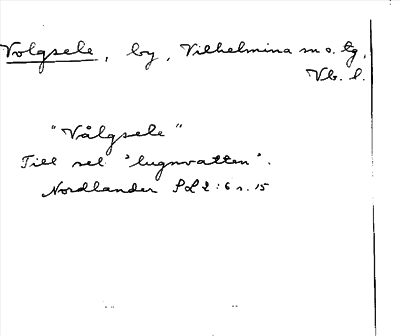 Volgsele, by, Vilhelmina sn o. tg,
Vb. l.
"Vålgsele"
Till sel "lugnvatten".
Nordlander SL 2:6 s. 15